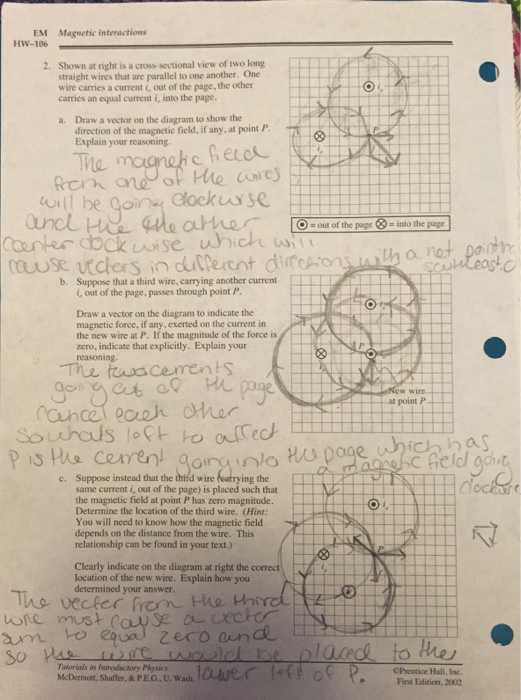 EM Magnetic interactions
HW-106
2. Shown at right is a cross-sectional view of two long
straight wires that are parallel to one another. One
wire carries a current i₀ out of the page, the other
carries an equal current i₀ into the page.
a. Draw a vector on the diagram to show the
direction of the magnetic field, if any, at point P.
Explain your reasoning.
The magnetic field
from one of the wires
will be going clockwise
and the other
counter clockwise which will
cause vectors in different directions with a net pointing
southeast
⊙ = out of the page ⊗ = into the page
b. Suppose that a third wire, carrying another current
i₀ out of the page, passes through point P.
Draw a vector on the diagram to indicate the
magnetic force, if any, exerted on the current in
the new wire at P. If the magnitude of the force is
zero, indicate that explicitly. Explain your
reasoning.
P
New wire
at point P
The two currents
going out of the page
cancel each other
so whats left to affect
P is the current going into the page which has
a magnetic field going
clockwise
c. Suppose instead that the third wire (carrying the
same current i₀ out of the page) is placed such that
the magnetic field at point P has zero magnitude.
Determine the location of the third wire. (Hint:
You will need to know how the magnetic field
depends on the distance from the wire. This
relationship can be found in your text.)
Clearly indicate on the diagram at right the correct
location of the new wire. Explain how you
determined your answer.
P
The vector from the third
wire must cause a vector
sum to equal zero and
so the wire would be placed to the
lower left of P.
Tutorials in Introductory Physics
McDermott, Shaffer, & P.E.G., U. Wash.
©Prentice Hall, Inc.
First Edition, 2002